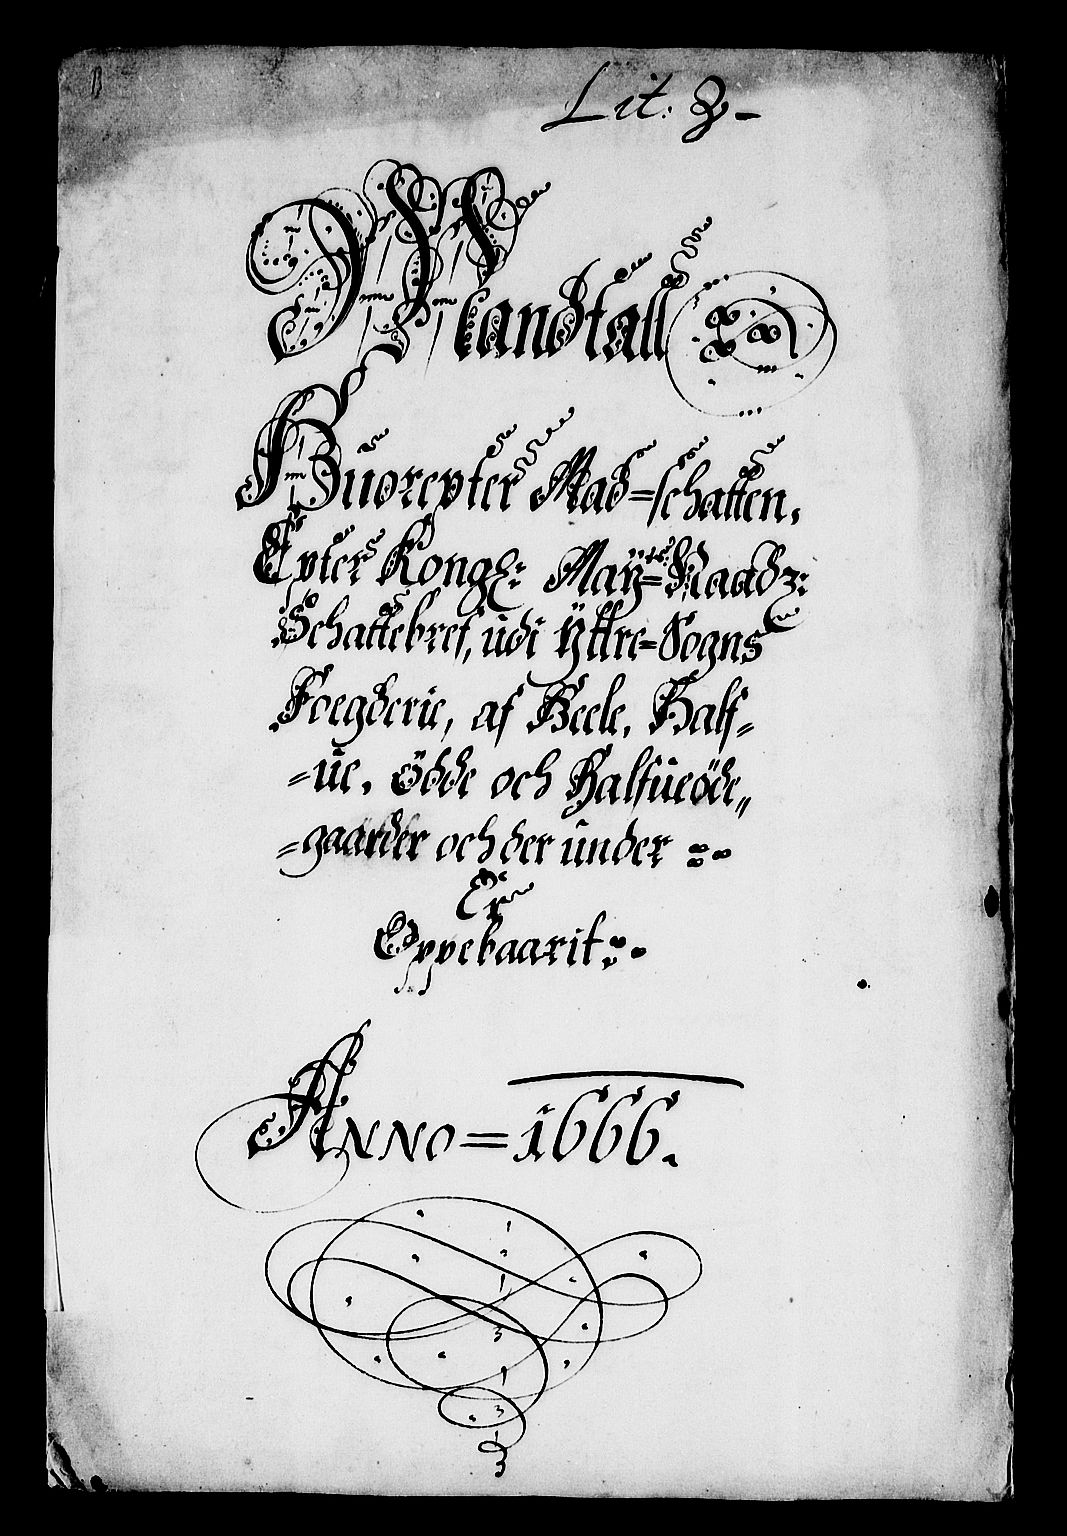 Lit: Z-
Mandtall
Huorepter Mad=schatten,
Epter Kongl: Maÿ=tz: Naadz:
Schattebref, udi Ÿttre=Sogns
Foegderie, af Heele, Half=
=ue, Ödde och Halfueöde„
=gaarder och der under
Er
Oppebaarit:
ANNO=1666.